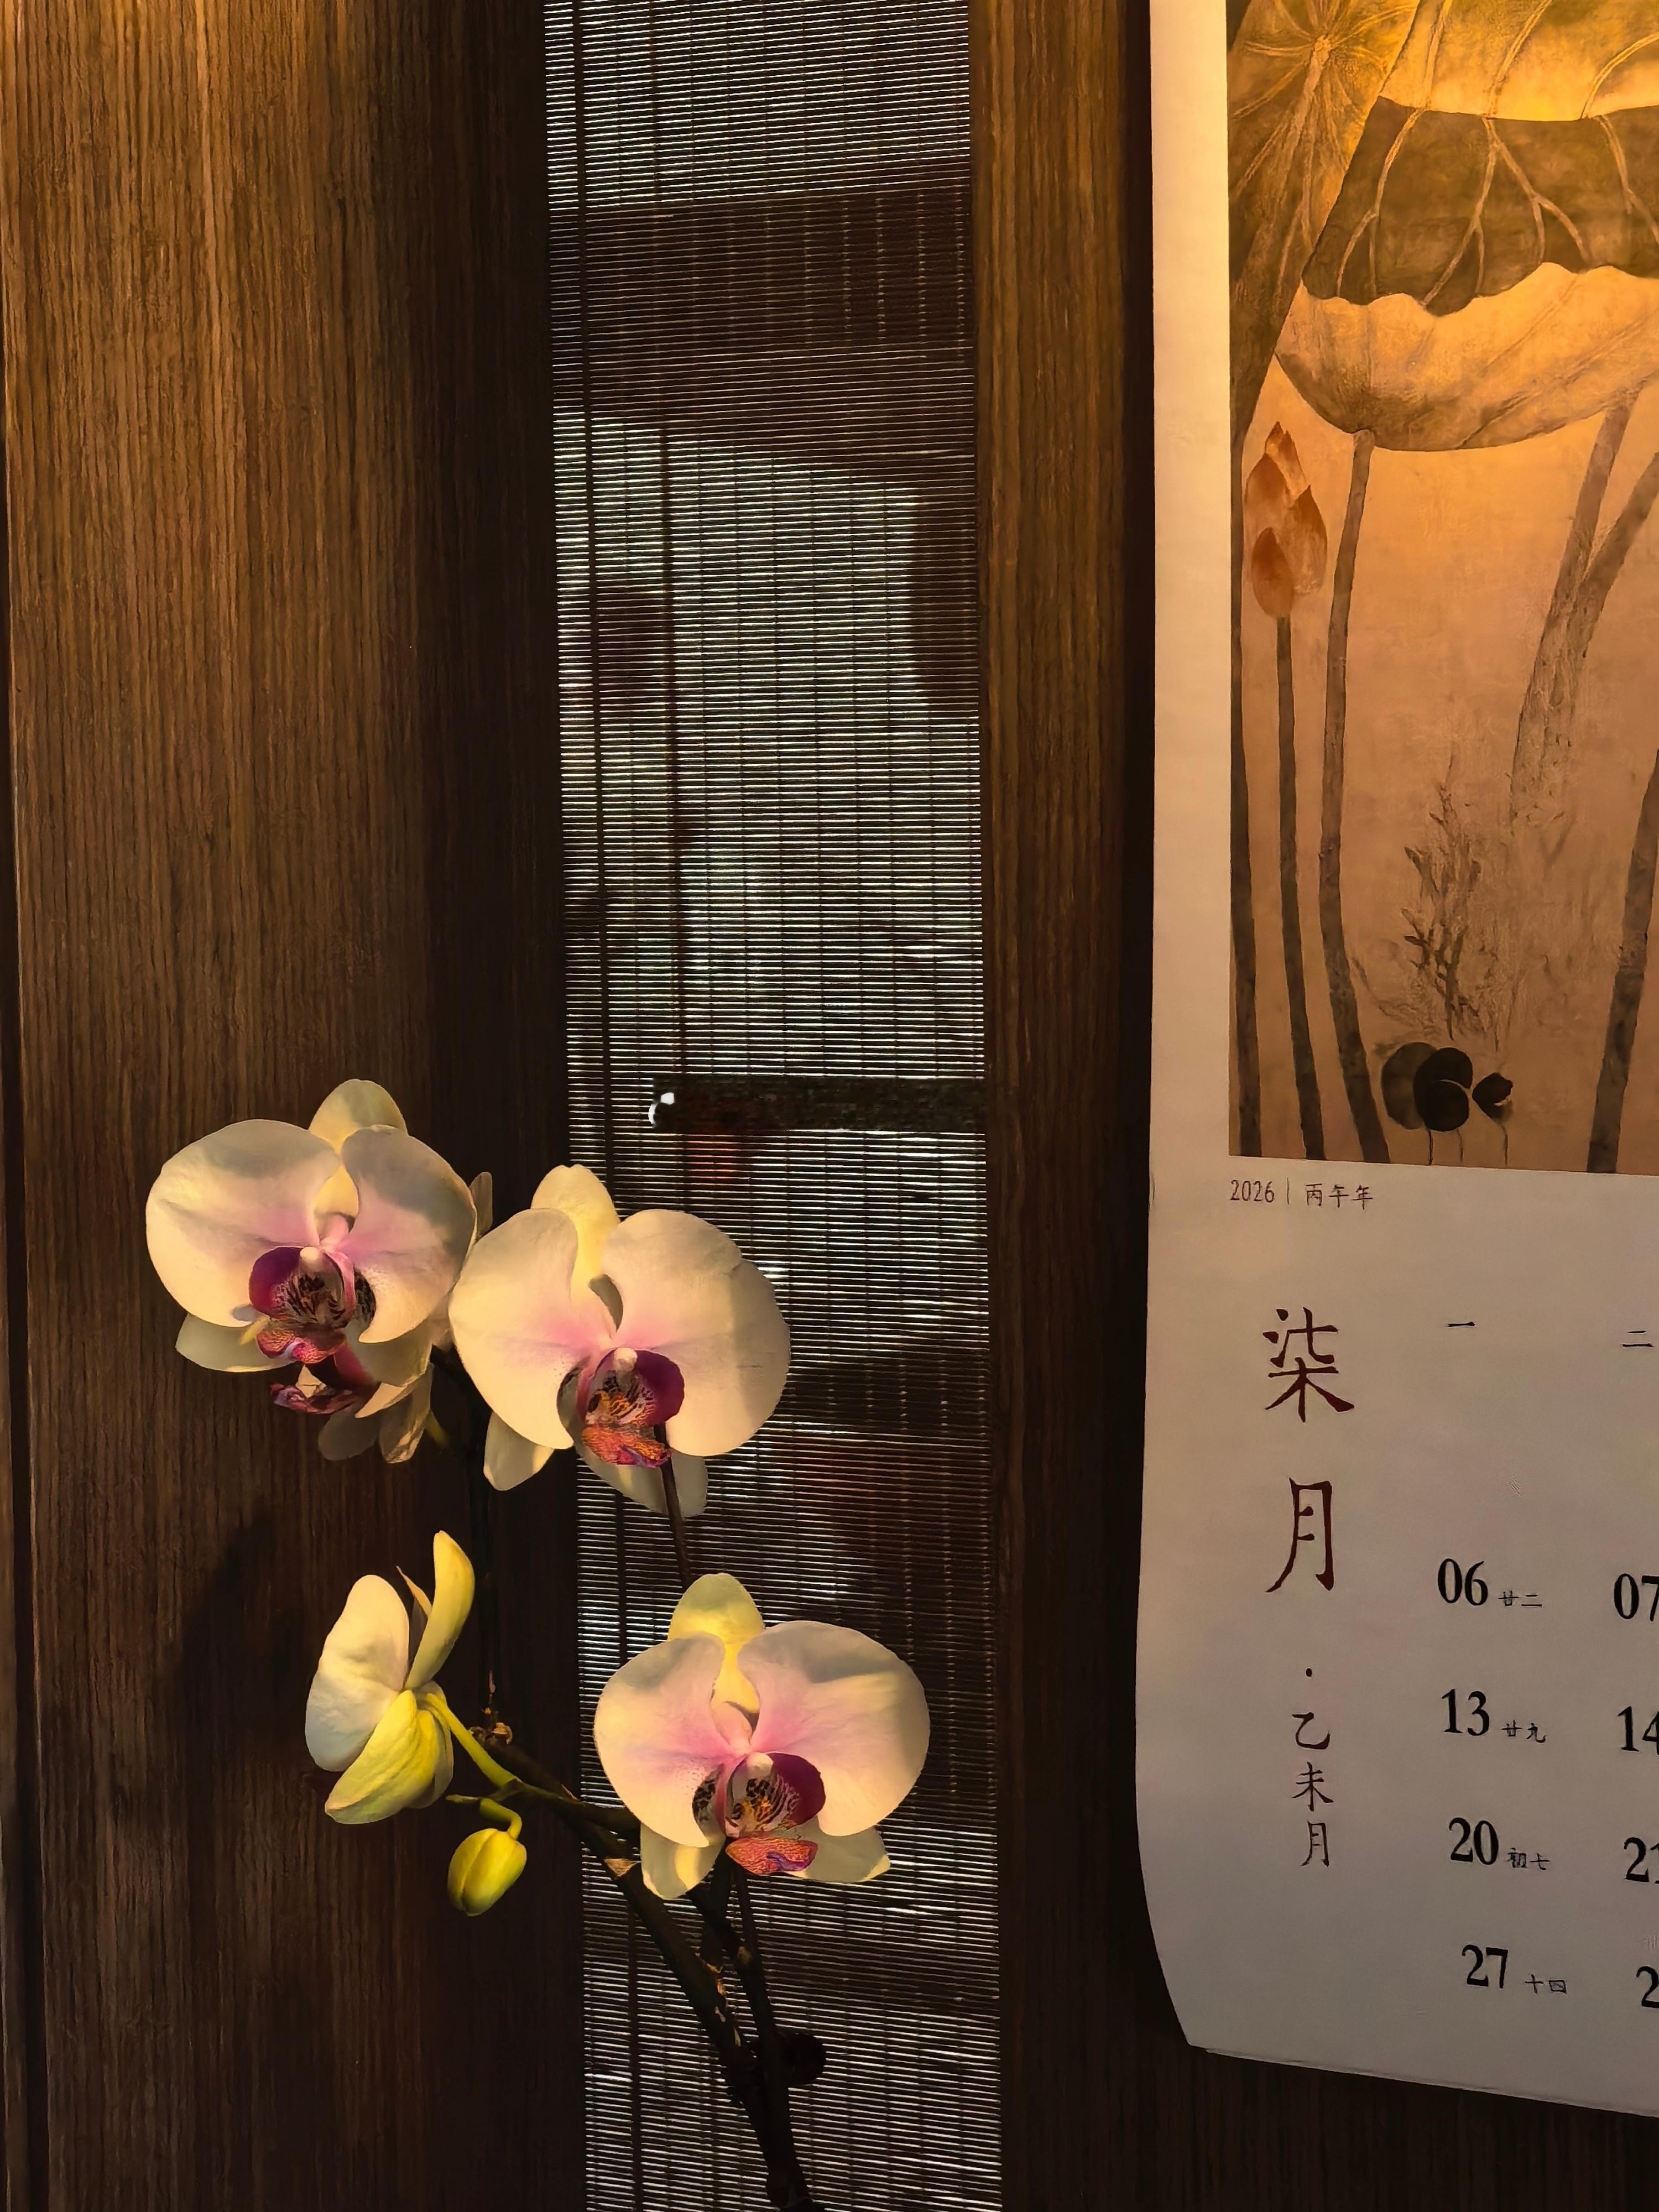 2026 | 丙午年
柒月·乙未月
一 二
06 廿二 07
13 廿九 14
20 初七 21
27 十四